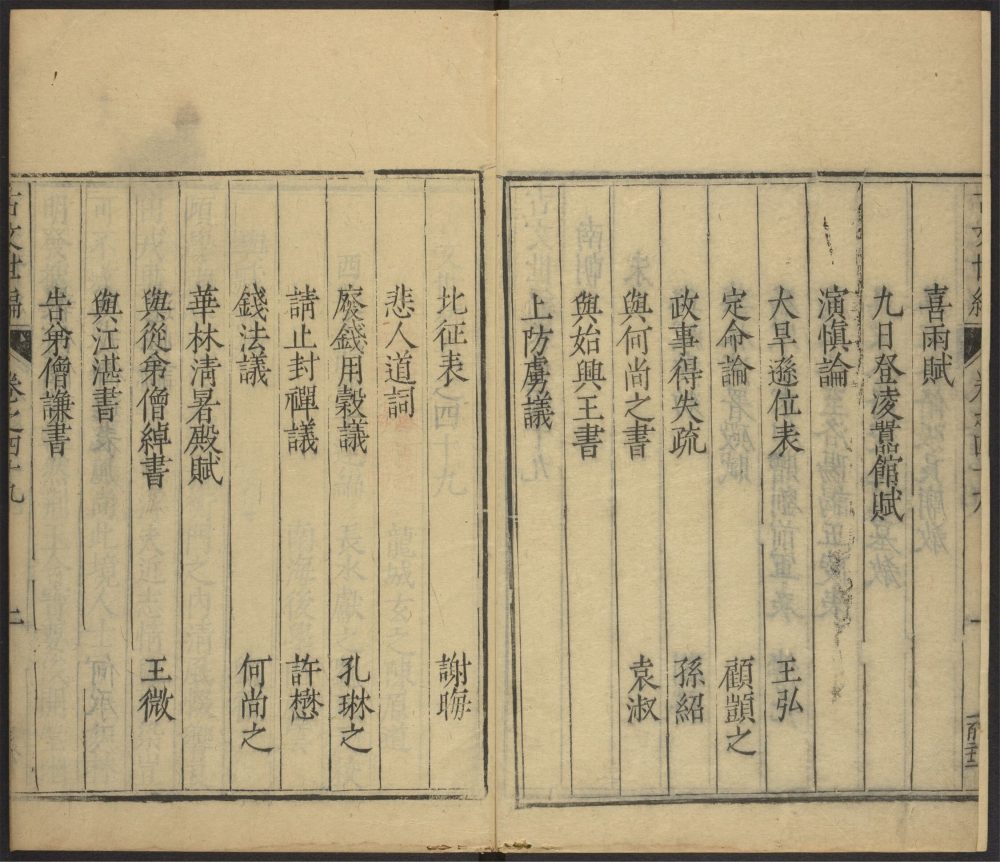 喜雨賦
九日登凌嚻館賦
演慎論
大旱遜位表 王弘
定命論 顧顗之
政事得失疏 孫紹
與何尚之書 袁淑
與始興王書
上防虜議
北征表 謝晦
悲人道詞
廢錢用穀議 孔琳之
請止封禪議 許懋
錢法議 何尚之
華林清暑殿賦
與從弟僧綽書 王微
與江湛書
告弟僧謙書
古文世編 卷之四十九 二